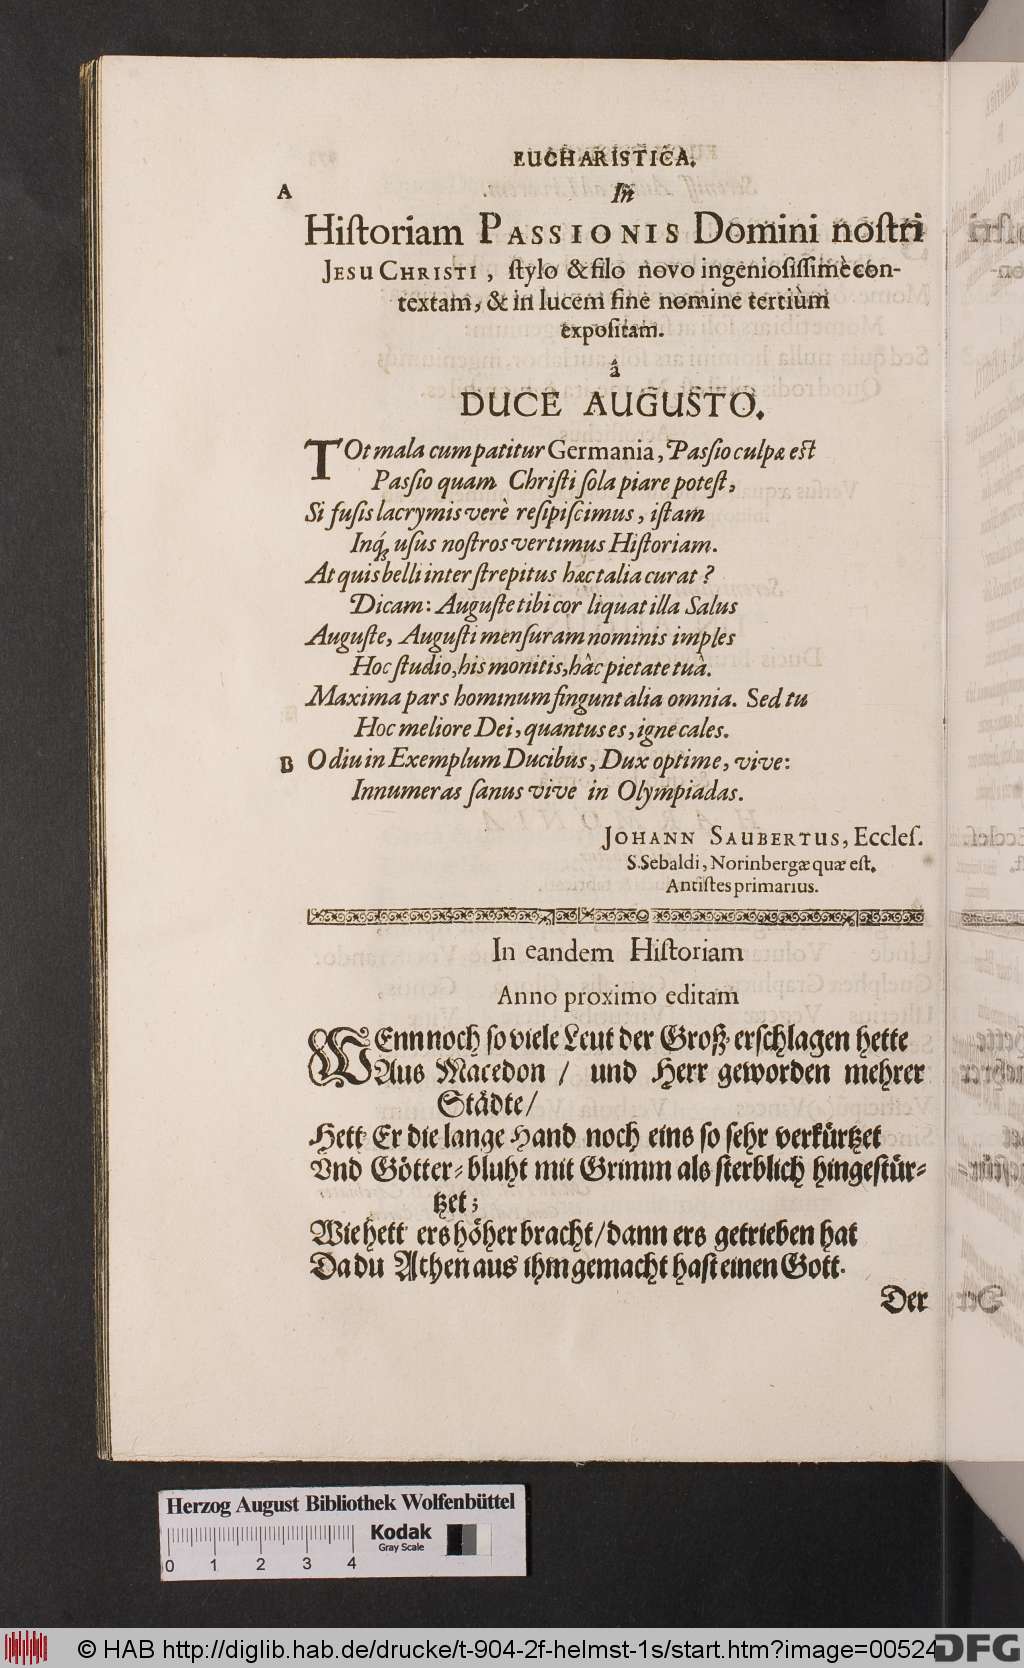 EUCHARISTICA.
A
In
Hiſtoriam PASSIONIS Domini noſtri
JESU CHRISTI, ſtylo & filo novo ingenioſiſſimè con-
textam, & in lucem ſine nomine tertiùm
expoſitam.
â
DUCE AUGUSTO.
TOt mala cum patitur Germania, Paſsio culpæ eſt
Paſsio quam Chriſti ſola piare poteſt,
Si fuſis lacrymis verè reſipiſcimus, iſtam
Inq́; uſus noſtros vertimus Hiſtoriam.
At quis belli inter ſtrepitus hæc talia curat?
Dicam: Auguſte tibi cor liquat illa Salus
Auguſte, Auguſti menſuram nominis imples
Hoc ſtudio, his monitis, hâc pietate tuà.
Maxima pars hominum fingunt alia omnia. Sed tu
Hoc meliore Dei, quantus es, igne cales.
B
O diu in Exemplum Ducibus, Dux optime, vive:
Innumeras ſanus vive in Olympiadas.
JOHANN SAUBERTUS, Eccleſ.
S. Sebaldi, Norinbergæ quæ eſt.
Antiſtes primarius.
In eandem Hiſtoriam
Anno proximo editam
WEnn noch ſo viele Leut der Groß erſchlagen hette
Aus Macedon / und Herr geworden mehrer
Städte/
Hett Er die lange Hand noch eins ſo ſehr verkürtzet
Vnd Götter-bluht mit Grimm als ſterblich hingeſtür-
tzet;
Wie hett ers höher bracht/ dann ers getrieben hat
Da du Athen aus ihm gemacht haſt einen Gott.
Der
Herzog August Bibliothek Wolfenbüttel
Kodak
Gray Scale
0 1 2 3 4
© HAB http://diglib.hab.de/drucke/t-904-2f-helmst-1s/start.htm?image=00524
DFG